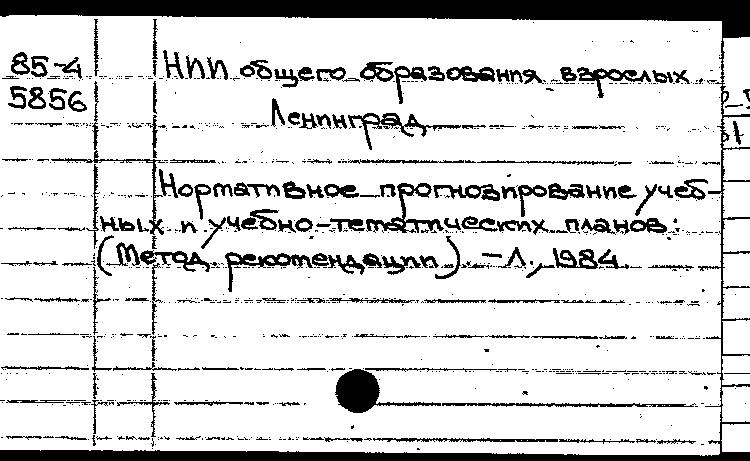 85-4 НИИ общего образования взрослых
5856 Ленинград
Нормативное прогнозирование учеб-
ных и учебно-тематических планов:
(Метод. рекомендации). - Л., 1984.